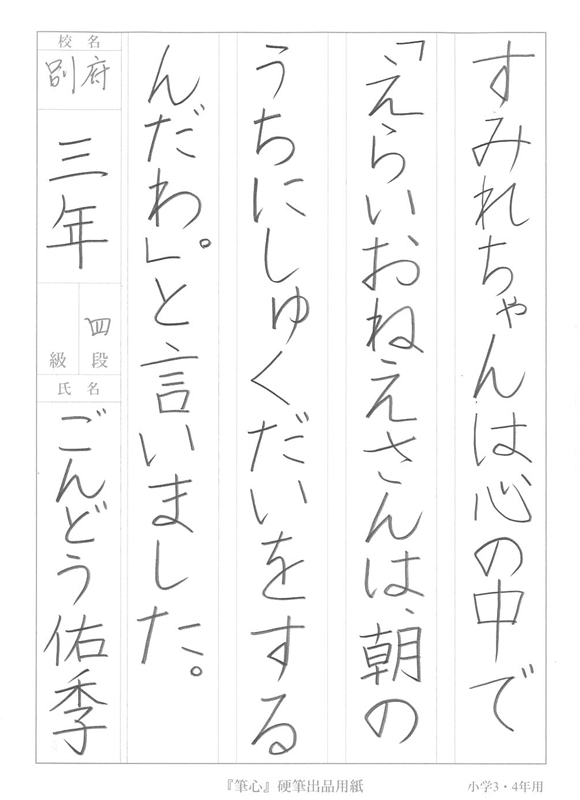 すみれちゃんは心の中で
「えらいおねえさんは、朝の
うちにしゅくだいをする
んだわ。」と言いました。
校名
別府
三年
四段
級
氏名
ごんどう佑季
『筆心』硬筆出品用紙
小学3・4年用